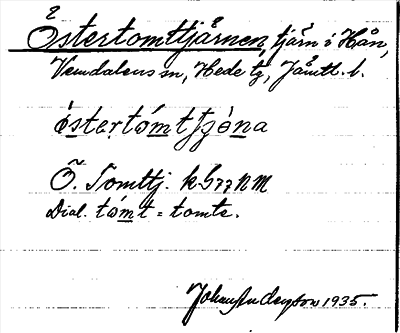 2
Östertomttjärnen, tjärn i Hån,
Vemdalens sn, Hede tg, Jämtl. l.
östertómttjὲna
Ö. Tomttj. k G77NM
Dial. tómt = tomte.
Johan Nordlander 1935.